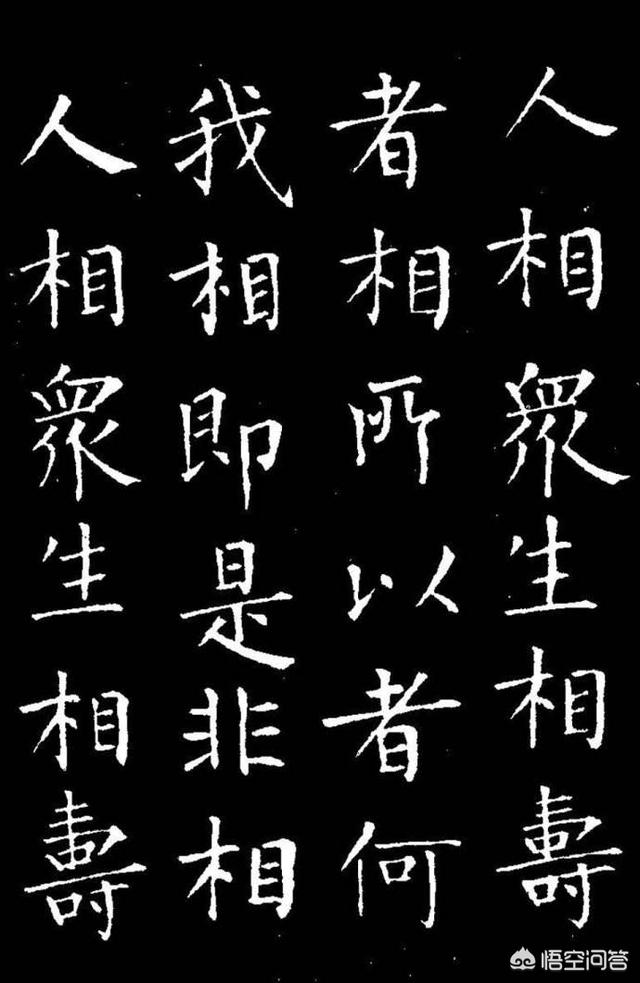 人相眾生相壽
者相所以者何
我相即是非相
人相眾生相壽
悟空问答